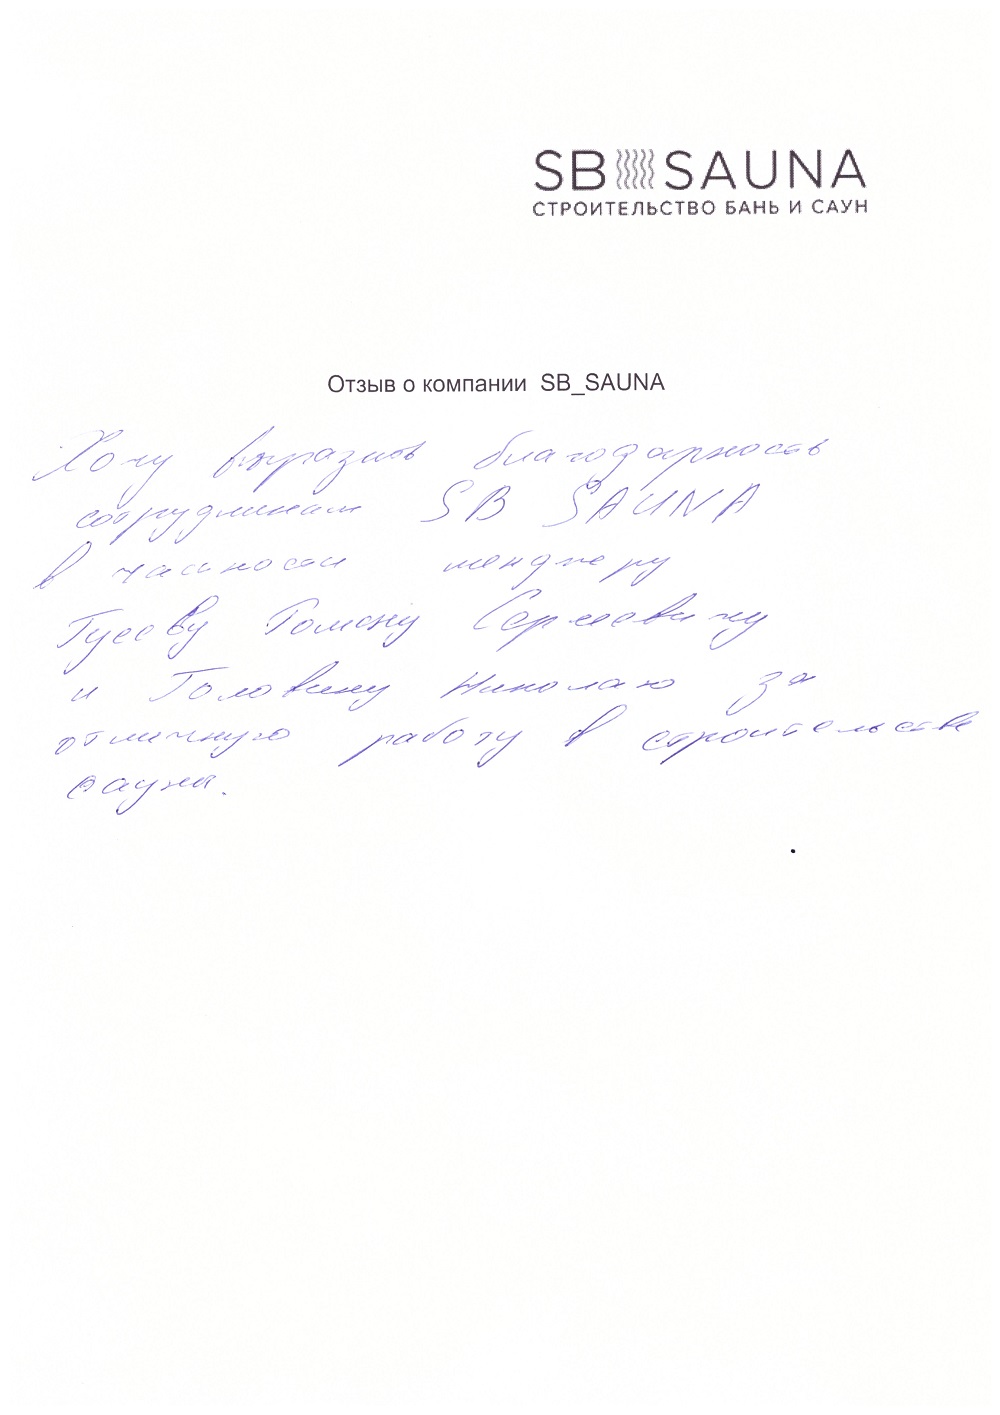 SB SAUNA
СТРОИТЕЛЬСТВО БАНЬ И САУН
Отзыв о компании SB_SAUNA
Хочу выразить благодарность
сотрудникам SB SAUNA
в частности менджеру
Гусеву Роману Сергеевичу
и Головину Николаю за
отличную работу в строительстве
сауны.